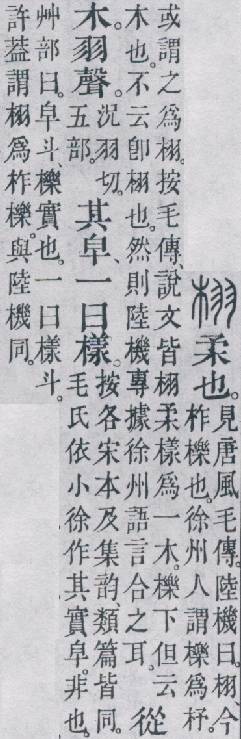 栩柔也。
見唐風毛傳。陸機曰。栩、今
柞櫟也。徐州人謂櫟爲杼。
或謂之爲栩。按毛傳、說文皆栩柔樣爲一木。櫟下但云
木也。不云卽栩也。然則陸機專據徐州語言合之耳。
從
木羽聲。
況羽切。
五部。
其皁、一曰樣。
按各宋本及集韵、類篇皆同。
毛氏依小徐作其實皁。非也。
艸部曰。皁斗、櫟實也。一曰樣斗。
許葢謂栩爲柞櫟。與陸機同。